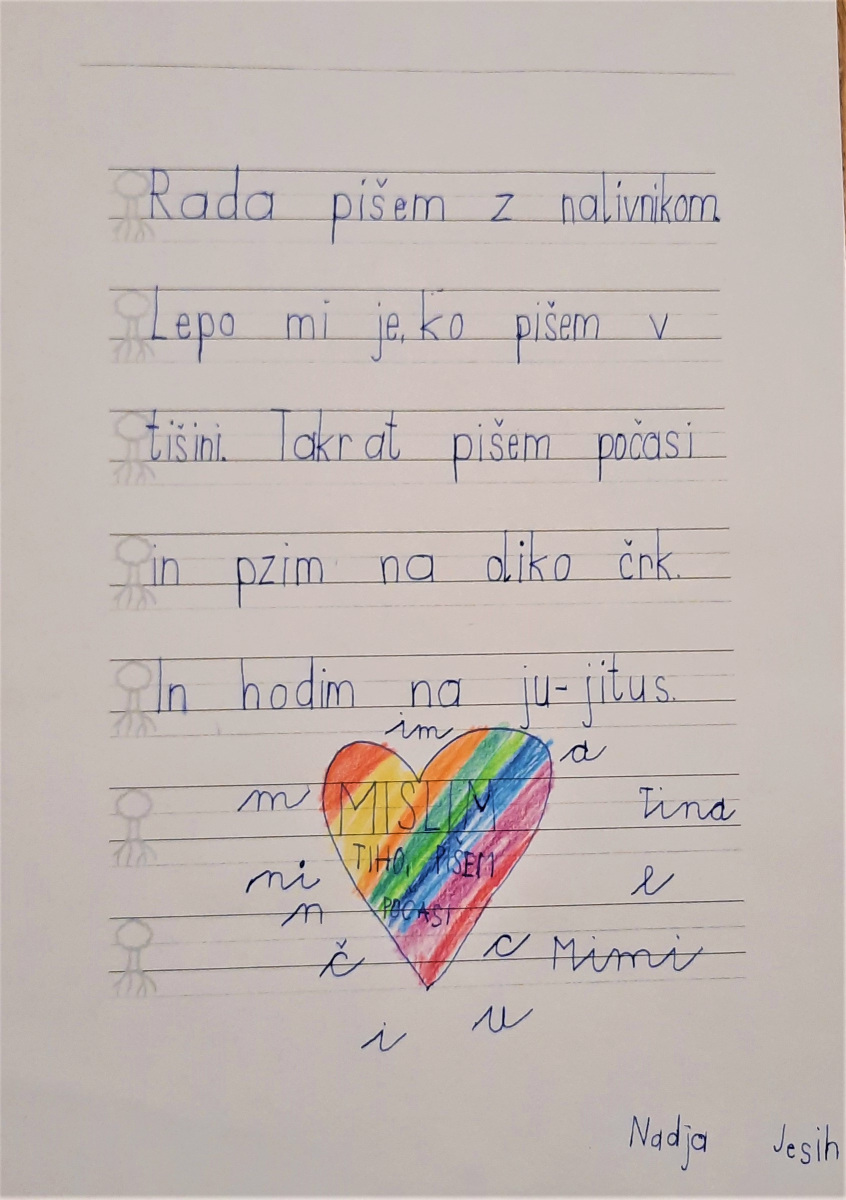 Rada pišem z nalivnikom.
Lepo mi je, ko pišem v
tišini. Takrat pišem počasi
in pzim na oliko črk.
In hodim na ju-jitus.
im
a
m
MISLIM
Tina
TIHO, PIŠEM
ni
e
n
POČASI
č
c Mimi
i
u
Nadja Jesih